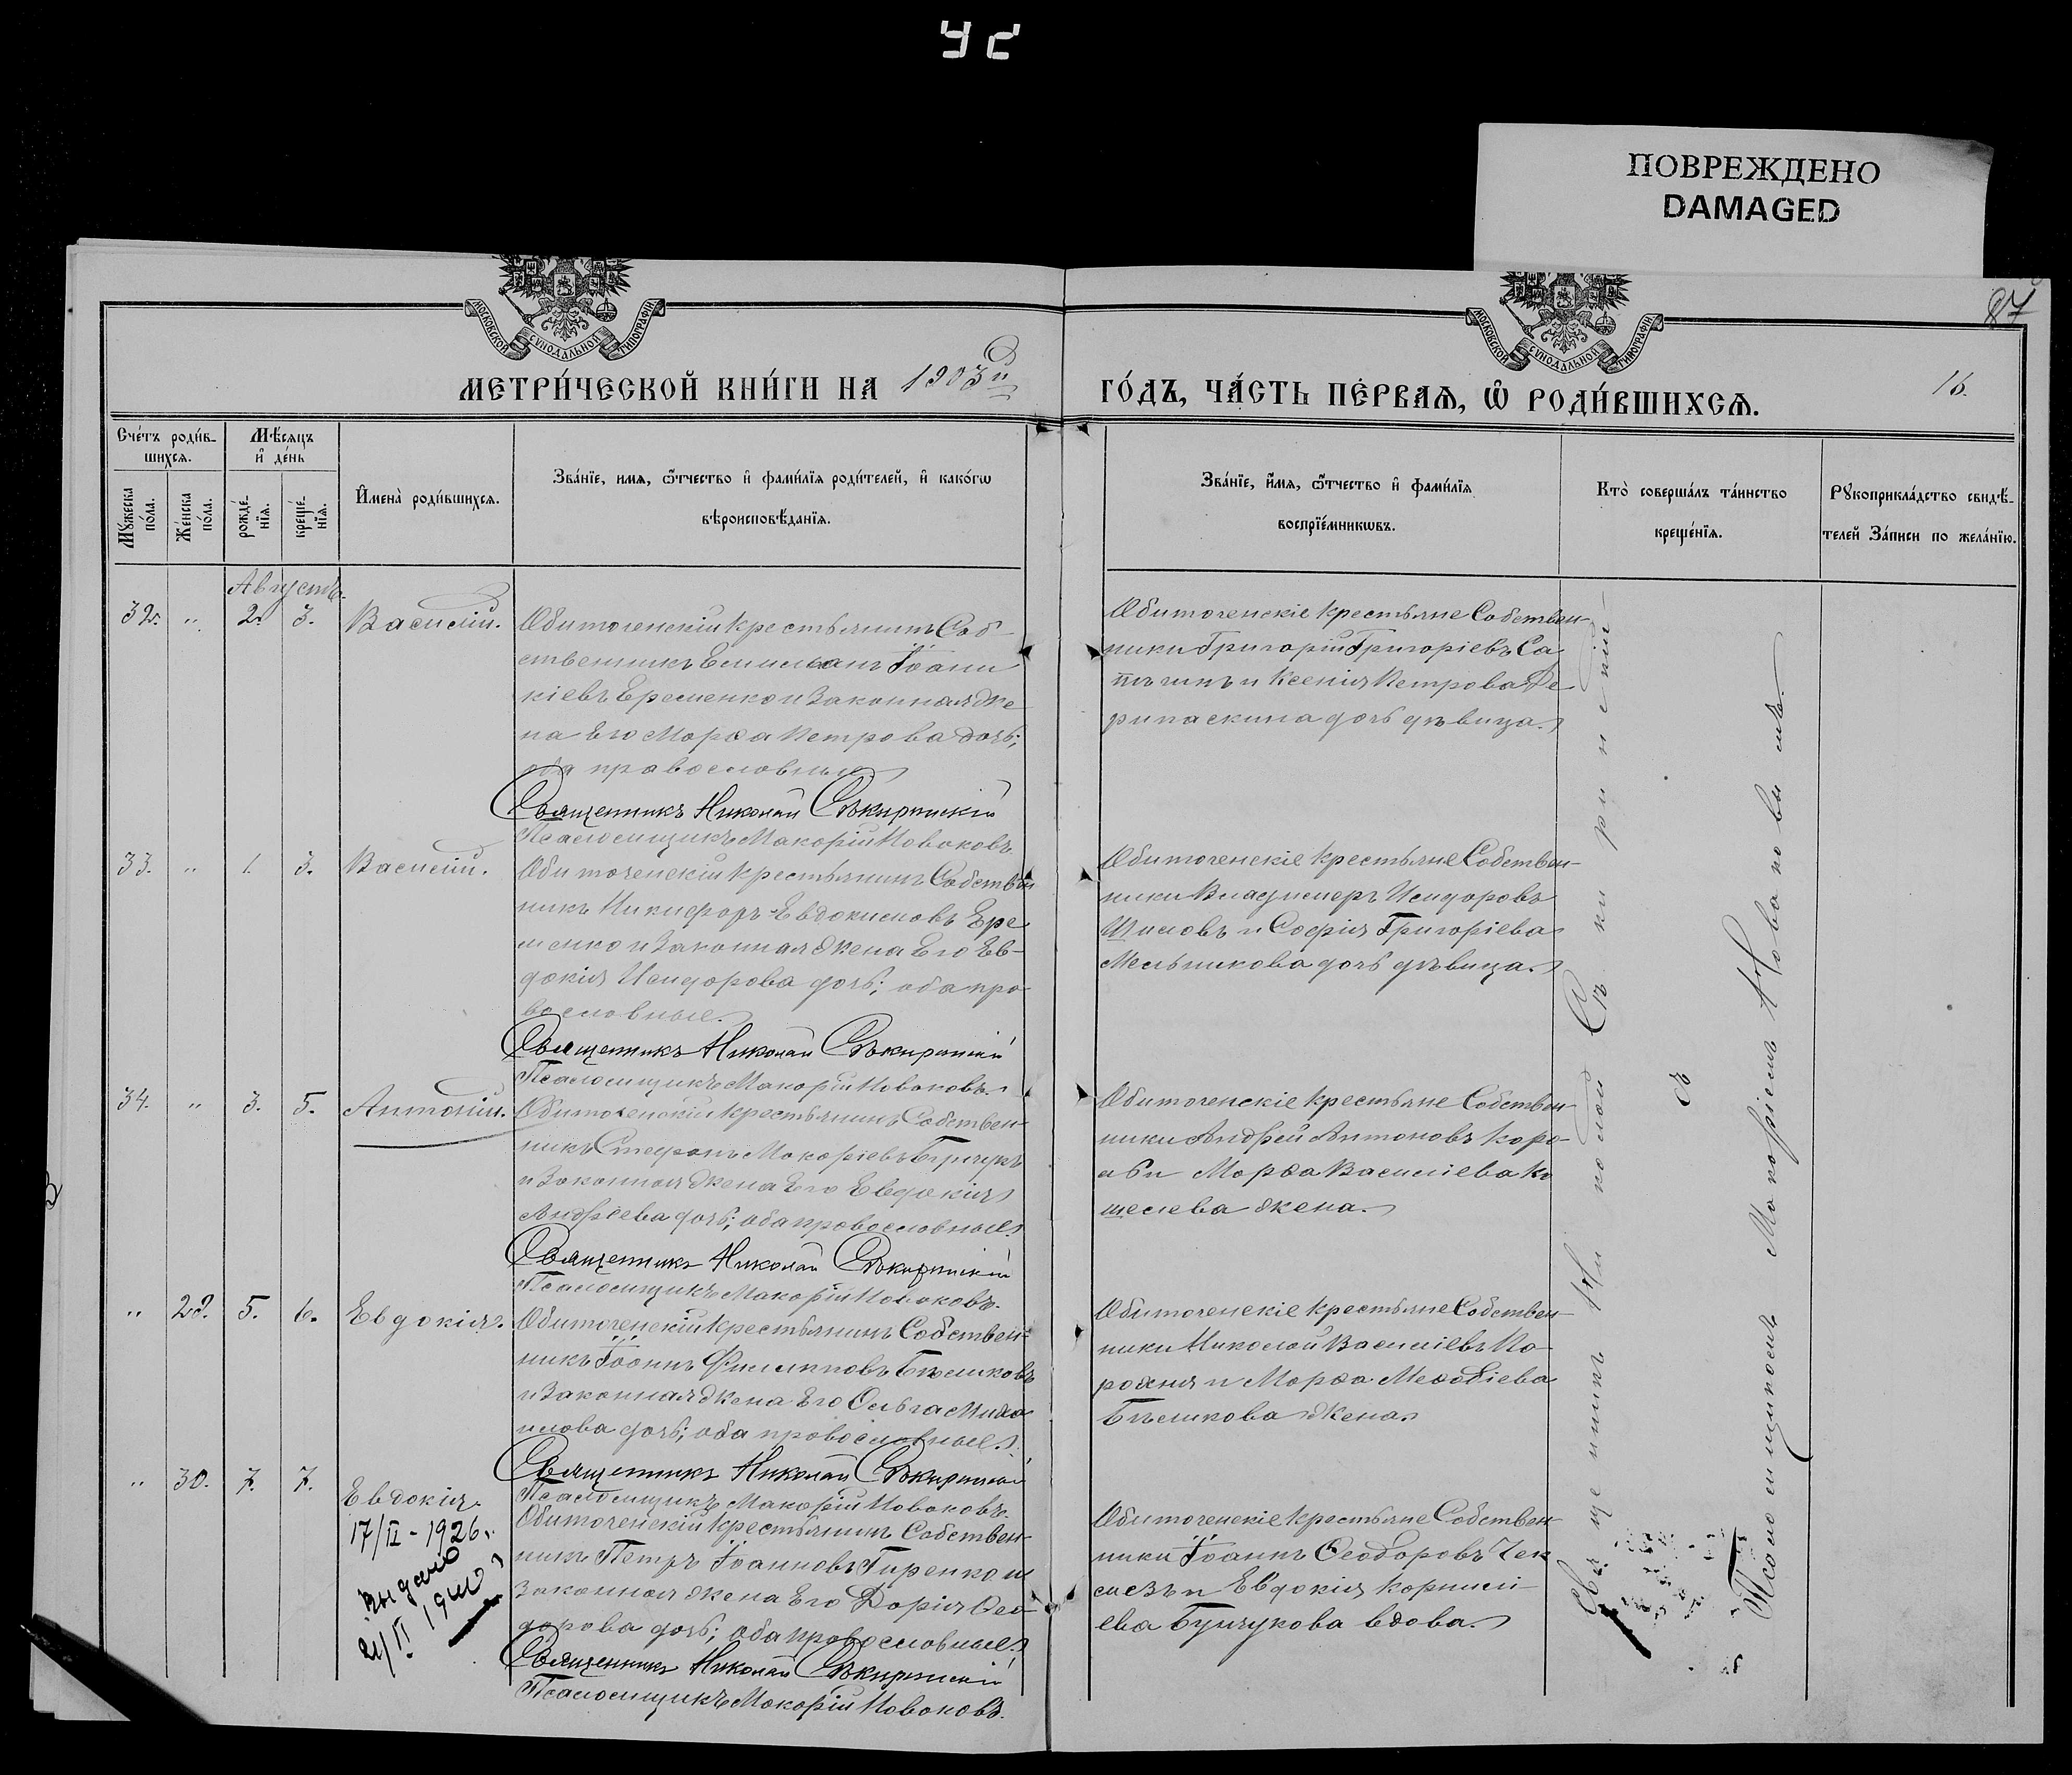 УС
ПОВРЕЖДЕНО
DAMAGED
МОСКОВСКОЙ СУНОДАЛЬНОЙ ТИПОГРАФІИ
МОСКОВСКОЙ СУНОДАЛЬНОЙ ТИПОГРАФІИ
87
МЕТРИ́ЧЕСКОЙ КНИ́ГИ НА 1903й
ГО́ДЪ, ЧА́СТЬ ПЕ́РВАѦ, Ѡ РОДИ́ВШИХСѦ.
16.
Сче́тъ роди́в-
шихсѧ.
Мꙋжеска по́ла.
Же́нска по́ла.
Мѣ́сѧцъ
и де́нь
рожде́-
нїѧ.
креще́-
нїѧ.
Имена̀ роди́вшихсѧ.
Зва́нїе, имѧ, ѿтчество и фами́лїѧ роди́телей, и како́гѡ
вѣроисповѣ́данїѧ.
Зва́нїе, и́мѧ, ѿтчество и фами́лїѧ
воспрїе́мникѡвъ.
Кто̀ соверша́лъ та́инство
креще́нїѧ.
Рꙋкоприкла́дство свидѣ́-
телей За́писи по жела́нїю.
Августъ.
32. " 2. 3. Василій.
Обиточенскій крестьянинъ Соб-
ственникъ Емиліанъ Іоани
кіевъ Еременко и Законная же
на Его Марѳа Петрова дочь;
оба православные.
Священникъ Николай Сѣкиринскій
Псаломщикъ Макарій Новаковъ.
Обиточенскіе крестьяне Собствен-
ники Григорій Григоріевъ Са
пъ и Ксенія Петрова Де
рипаскина дочь дѣвица.
33. " 1. 3. Василій.
Обиточенскій крестьянинъ Собствен
никъ Никифоръ Евдокимовъ Ере
менко и Законная жена Его Ев-
докія Исидорова дочь; оба пра
вославные.
Священникъ Николай Сѣкиринскій
Псаломщикъ Макарій Новаковъ.
Обиточенскіе крестьяне Собствен-
ники Владимеръ Исидоровъ
Шиловъ и Софія Григоріева
Мельникова дочь дѣвица.
34. " 3. 5. Антоній.
Обиточенскій крестьянинъ Собствен-
никъ Стефанъ Макаріевъ Бунчукъ
и Законная жена Его Евдокія
Андреева дочь; оба православные.
Священникъ Николай Сѣкиринскій
Псаломщикъ Макарій Новаковъ.
Обиточенскіе крестьяне Собствен-
ники Андрей Антоновъ Кора-
и Марѳа Василіева Ко
шелева жена.
" 29. 5. 6. Евдокія.
Обиточенскій крестьянинъ Собствен-
никъ Іоаннъ Филипповъ Бѣликовъ
и Законная жена Его Ольга Миха
илова дочь; оба православные.
Священникъ Николай Сѣкиринскій
Псаломщикъ Макарій Новаковъ.
Обиточенскіе крестьяне Собствен-
ники Николай Василіевъ По-
рохня и Марѳа Меѳодіева
Бѣликова жена.
" 30. 7. 7. Евдокія.
17/II - 1926.
Обиточенскій крестьянинъ Собствен-
никъ Петръ Іоанновъ Гиренко и
Законная жена Его Дарія Ѳео-
дорова дочь; оба православные.
Священникъ Николай Сѣкиринскій
Псаломщикъ Макарій Новаковъ.
Обиточенскіе крестьяне Собствен-
ники Іоаннъ Ѳеодоровъ Чек
и Евдокія Корнилі-
ева Бунчукова вдова.
Священникъ Николай Сѣкиринскій
съ
Псаломщикомъ Макаріемъ Новаковымъ.